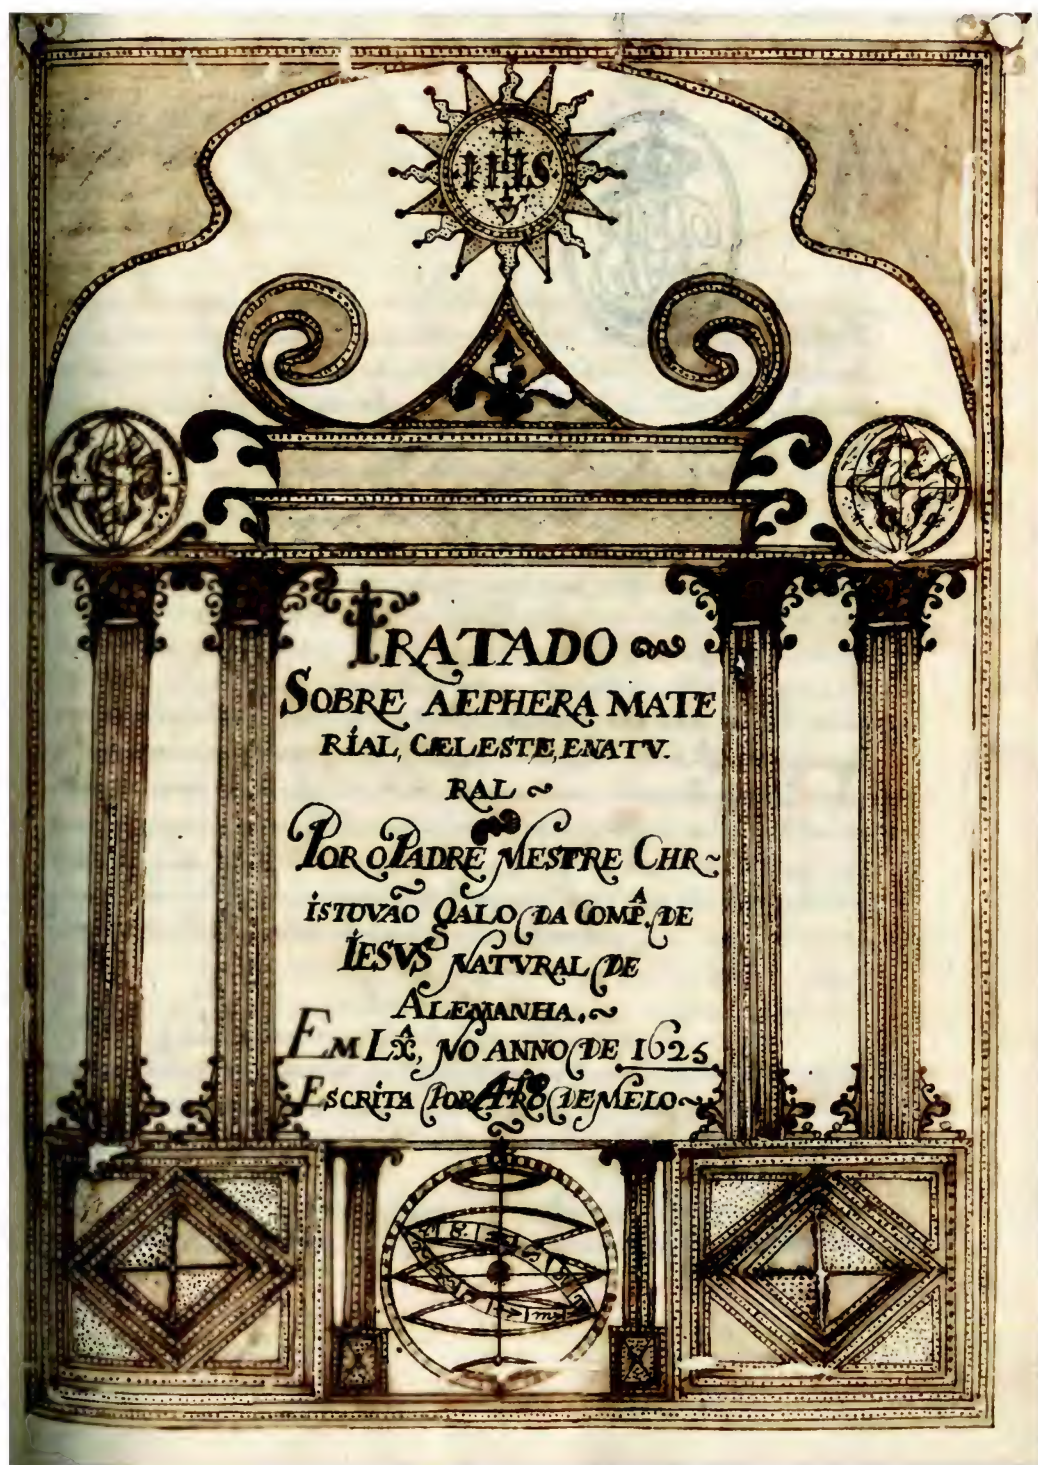 IHS
TRATADO
SOBRE AEPHERA MATE
RIAL, CÆLESTE, ENATV.
RAL
POR O PADRE MESTRE CHR~
ISTOVÃO GALO DA COMP.ᴬ DE
IESVS NATVRAL DE
ALEMANHA.
EM LX.ᴬ, NO ANNO DE 1625
ESCRITA POR DE MELO